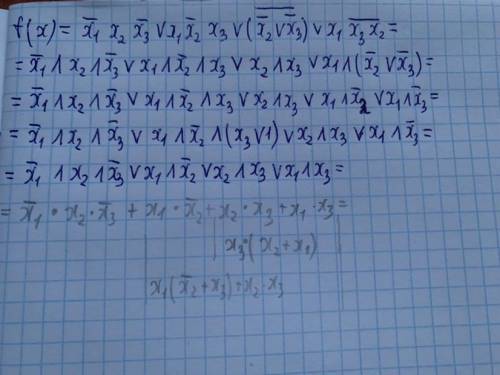 f(x) = x̄₁ x₂ x̄₃ ∨ x₁ x̄₂ x₃ ∨ (\overline{x̄₂ ∨ x̄₃}) ∨ x₁ \overline{x₃ x₂} =
= x̄₁ ∧ x₂ ∧ x̄₃ ∨ x₁ ∧ x̄₂ ∧ x₃ ∨ x₂ ∧ x₃ ∨ x₁ ∧ (x̄₂ ∨ x̄₃) =
= x̄₁ ∧ x₂ ∧ x̄₃ ∨ x₁ ∧ x̄₂ ∧ x₃ ∨ x₂ ∧ x₃ ∨ x₁ ∧ x̄₂ ∨ x₁ ∧ x̄₃ =
= x̄₁ ∧ x₂ ∧ x̄₃ ∨ x₁ ∧ x̄₂ ∧ (x₃ ∨ 1) ∨ x₂ ∧ x₃ ∨ x₁ ∧ x̄₃ =
= x̄₁ ∧ x₂ ∧ x̄₃ ∨ x₁ ∧ x̄₂ ∨ x₂ ∧ x₃ ∨ x₁ ∧ x₃ =
= x̄₁ · x₂ · x̄₃ + x₁ · x̄₂ + x₂ · x₃ + x₁ · x₃ =
x₃ · (x₂ + x₁)
x₁ (x̄₂ + x₃) + x₂ · x₃